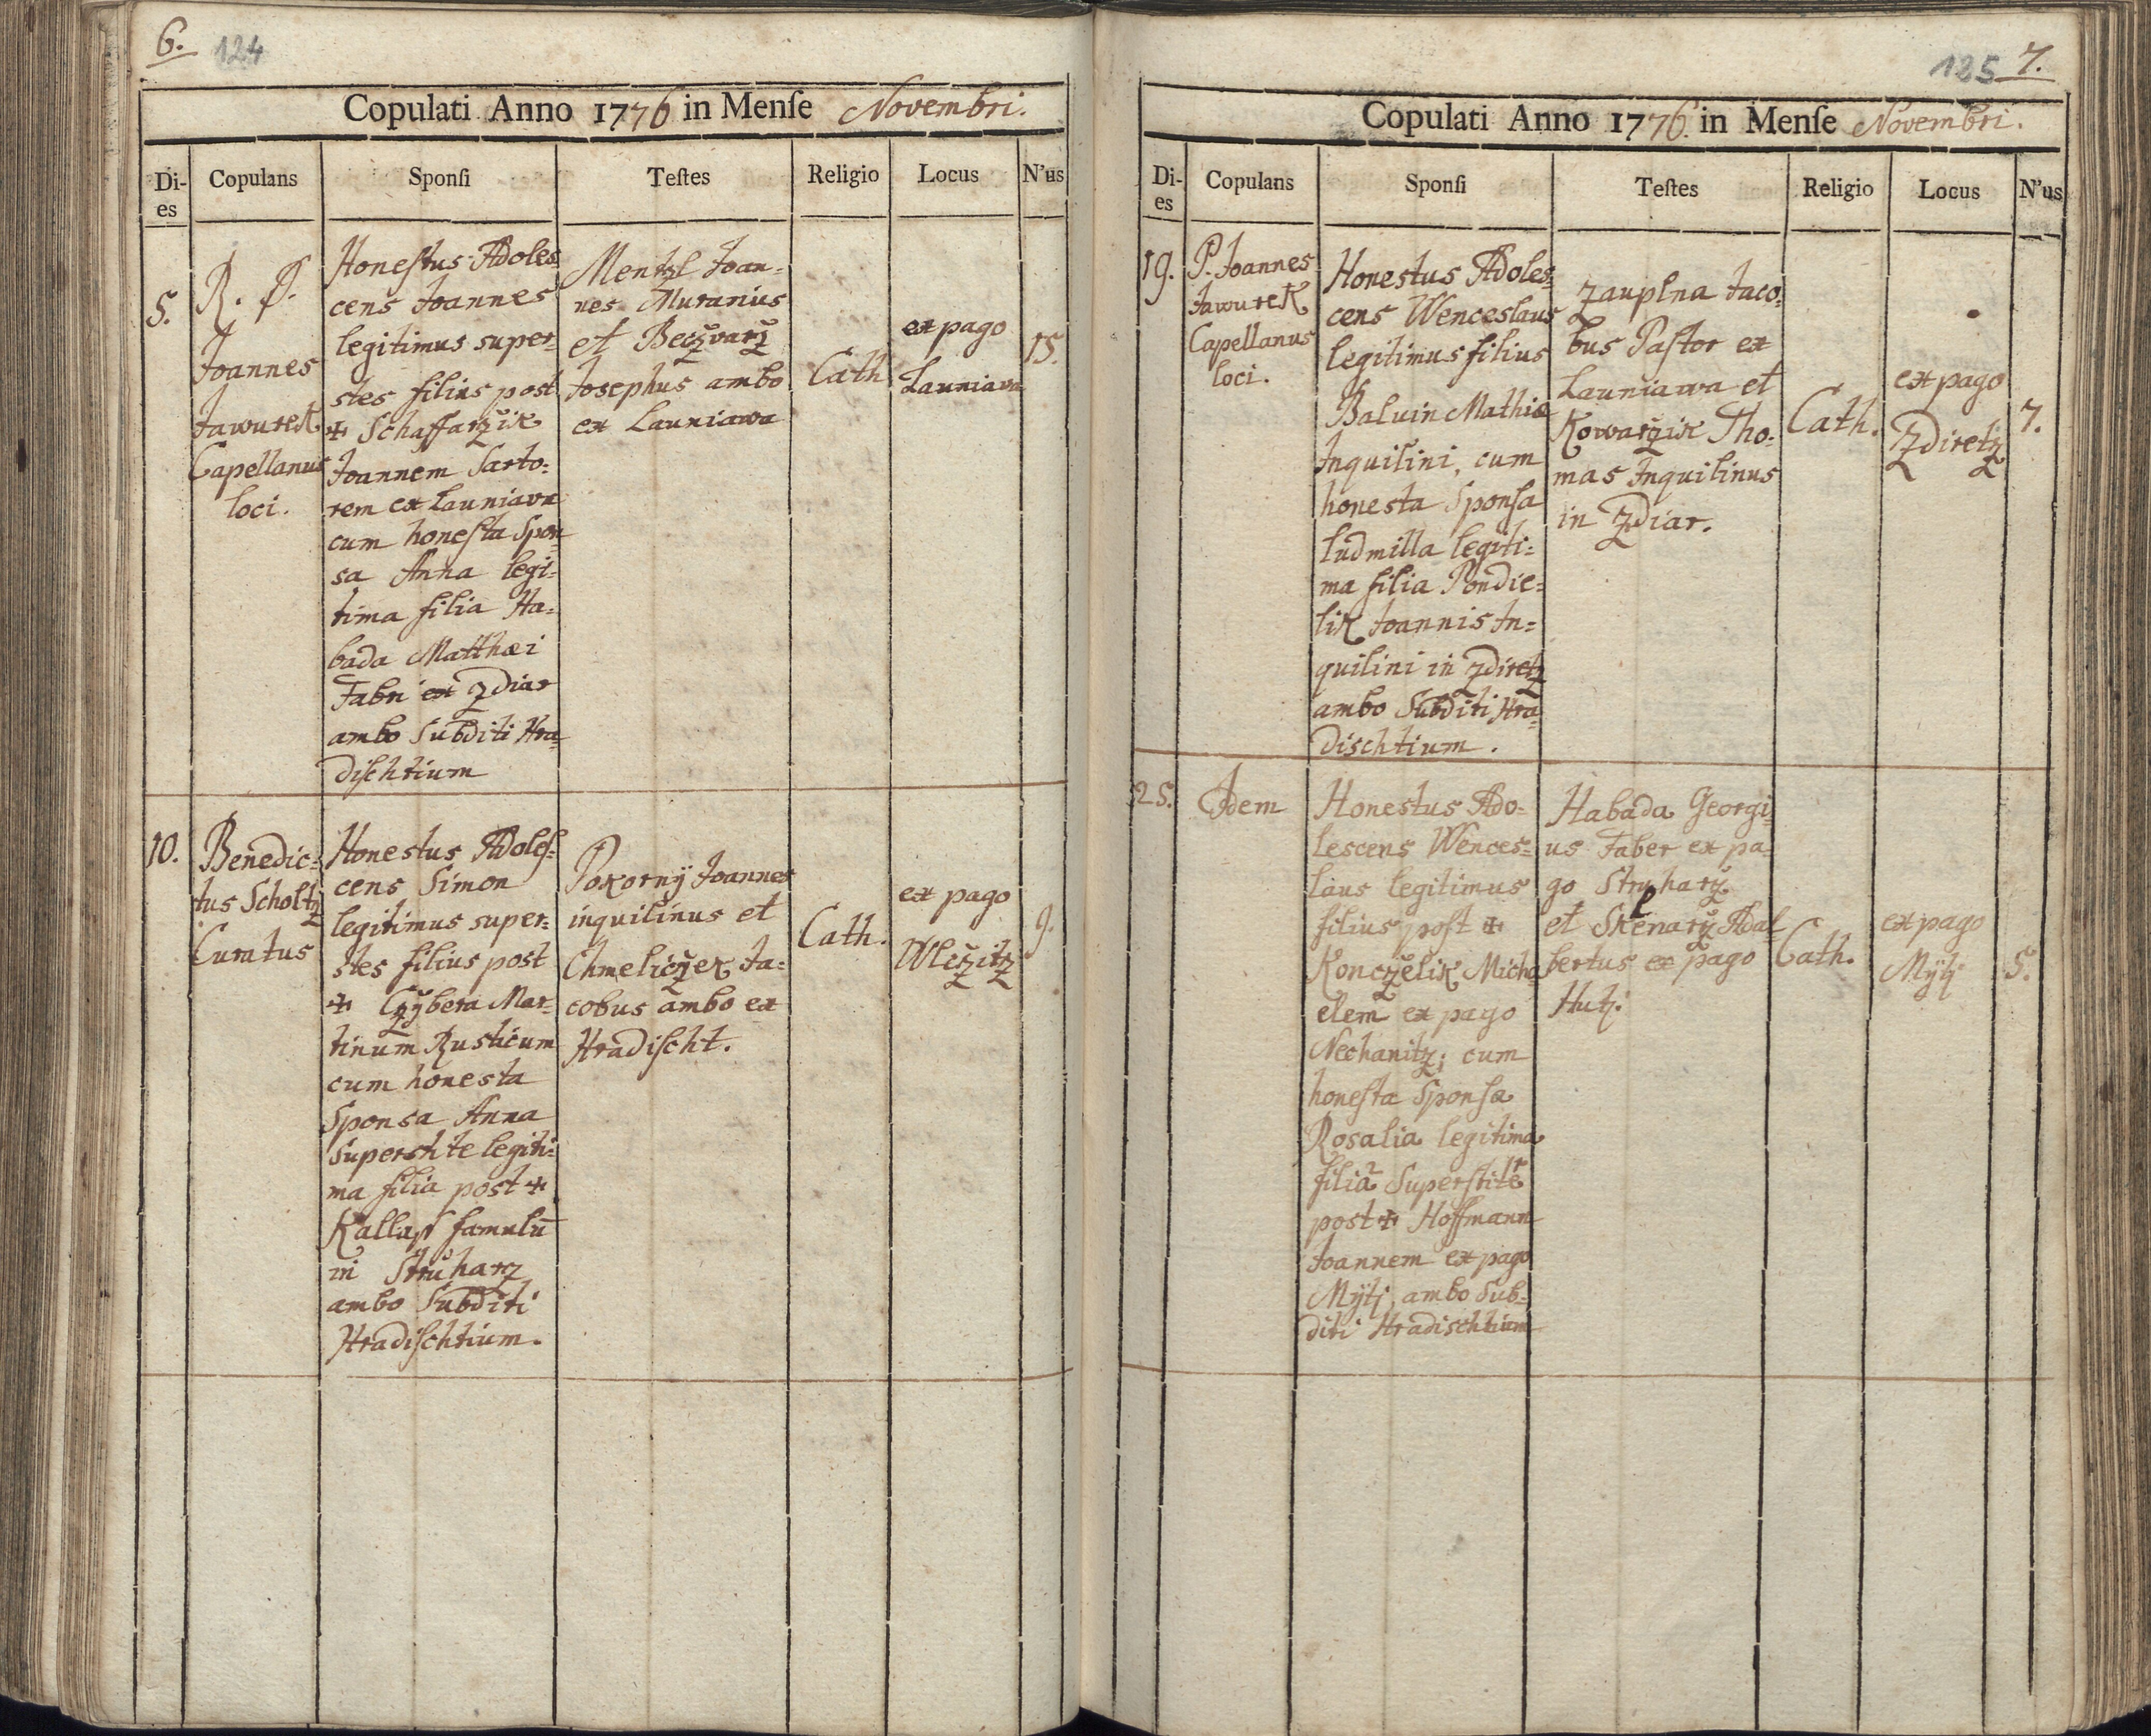 6. 124
Copulati Anno 1776 in Menſe Novembri.
Di-
es
Copulans
Sponſi
Teſtes
Religio
Locus
N'us
5.
R. P.
Joannes
Jawurek
Capellanus
loci.
Honeſtus Adoles=
cens Joannes
legitimus super=
stes filius post
✠ Schaffarzik
Joannem Sarto=
rem ex Launiava
cum honeſta Spon=
sa Anna legi=
tima filia Ha=
bada Matthæi
Fabri ex Zdiar
ambo Subditi Hra=
diſchtium
Mentzl Joan=
nes Murarius
et Beczvarz
Josephus ambo
ex Launiawa
Cath
ex pago
Launiava
15.
10.
Benedic=
tus Scholtz
Curatus
Honestus Adoleſ=
cens Simon
legitimus super=
stes filius post
✠ Czybera Mar=
tinum Rusticum
cum honesta
Sponsa Anna
Superstite legiti=
ma filia post ✠
Kallaſſ famulū
in Struharz
ambo Subditi
Hradiſchtium.
Pokornÿ Joannes
inquilinus et
Chmeliczek Ja=
cobus ambo ex
Hradiſcht.
Cath.
ex pago
Wlczitz
9.
125 7.
Copulati Anno 1776. in Menſe Novembri.
Di-
es
Copulans
Sponſi
Teſtes
Religio
Locus
N'us
19.
P. Joannes
Jawurek
Capellanus
loci.
Honestus Adoles=
cens Wenceslaus
legitimus filius
Baluin Mathiæ
Inquilini, cum
honesta Sponſa
Ludmilla legiti=
ma filia Pondie=
lik Joannis In=
quilini in Zdiretz
ambo Subditi Hra=
dischtium.
Zauplna Jaco=
bus Paſtor ex
Launiawa et
Kowarzik Tho=
mas Inquilinus
in Zdiar.
Cath.
ex pago
Zdiretz
7.
25.
Idem
Honestus Ado=
lescens Wences=
laus legitimus
filius poſt ✠
Konczelik Micha
elem ex pago
Nechanitz; cum
honeſta Sponſa
Rosalia legitima
filia Superſtite
post ✠ Hoffmann
Joannem ex pago
Mÿtj, ambo Sub=
diti Hradischtium
Habada Georgi=
us Faber ex pa=
go Struharz
et Sklenarz Adal=
bertus ex pago
Hutj.
Cath.
ex pago
Mÿtj
5.